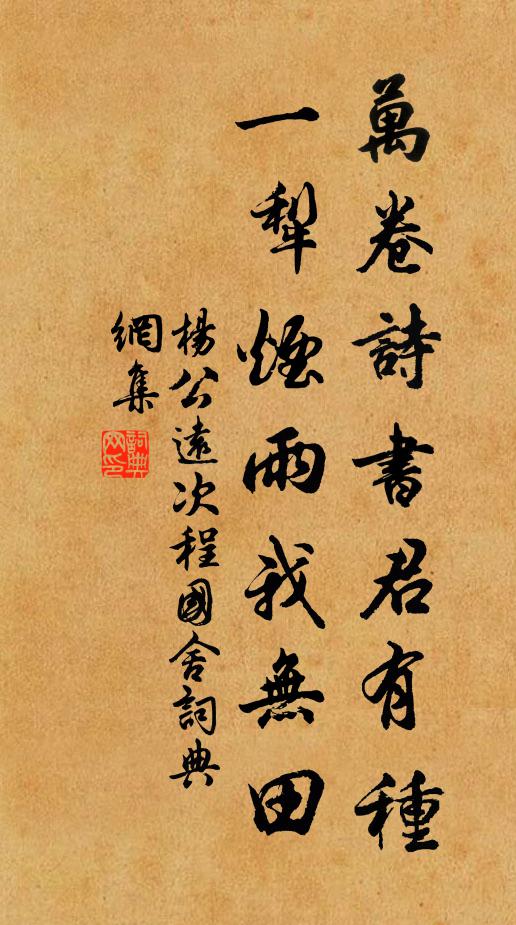 萬卷詩書君有種
一犁煙雨我無田
楊公遠次程國舍詞典
網集
詞典
网印